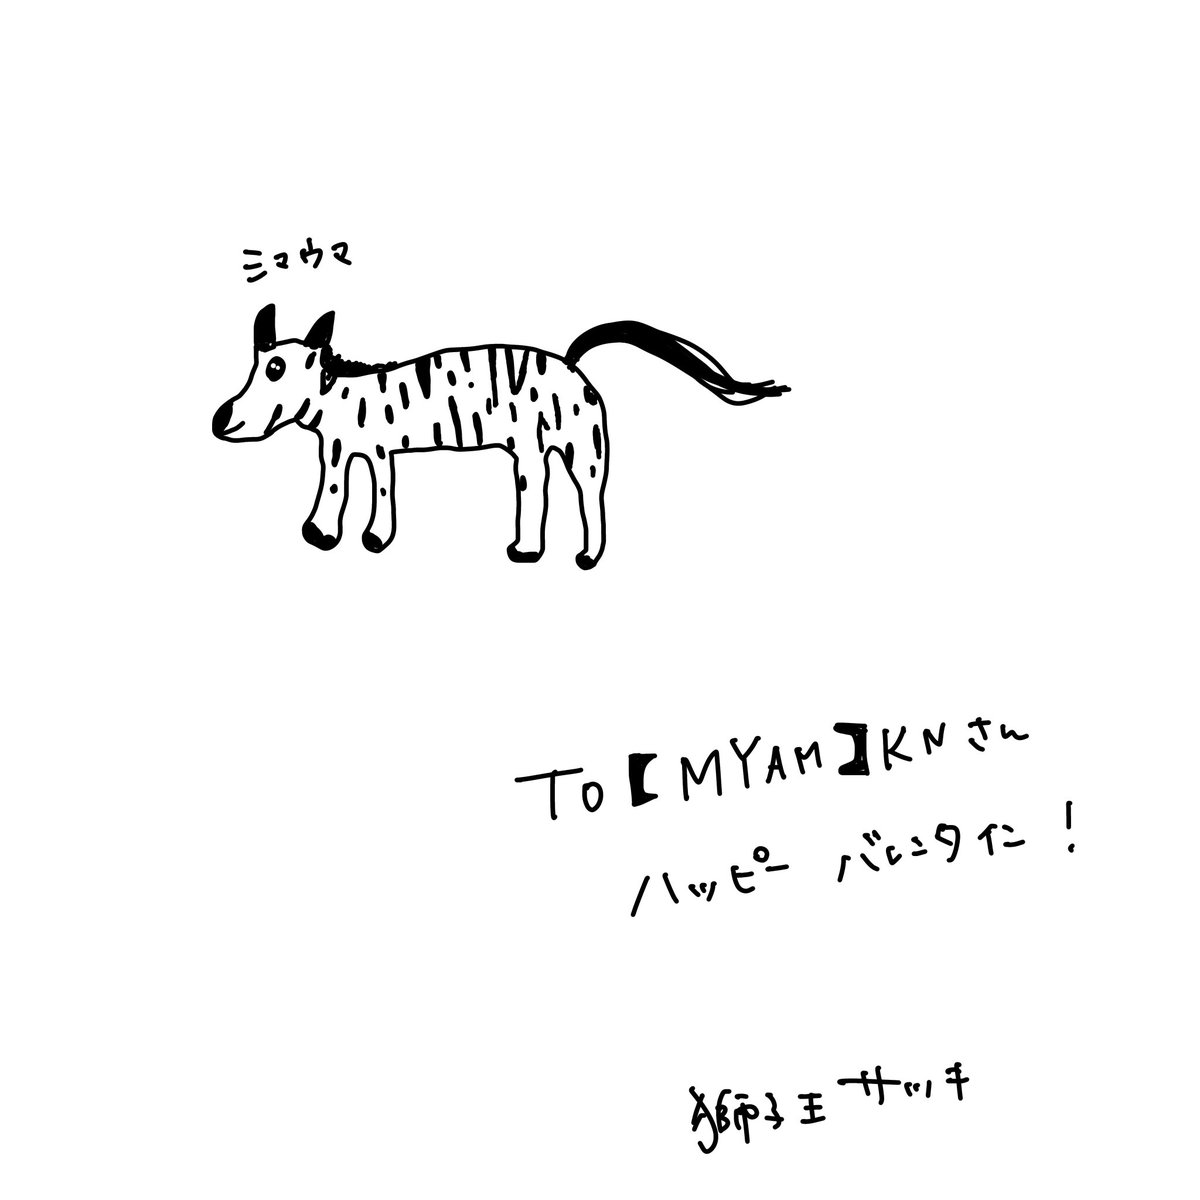 ミマウマ
TO【MYAM】KNさん
ハッピー バレンタイン!
獅子王サツキ